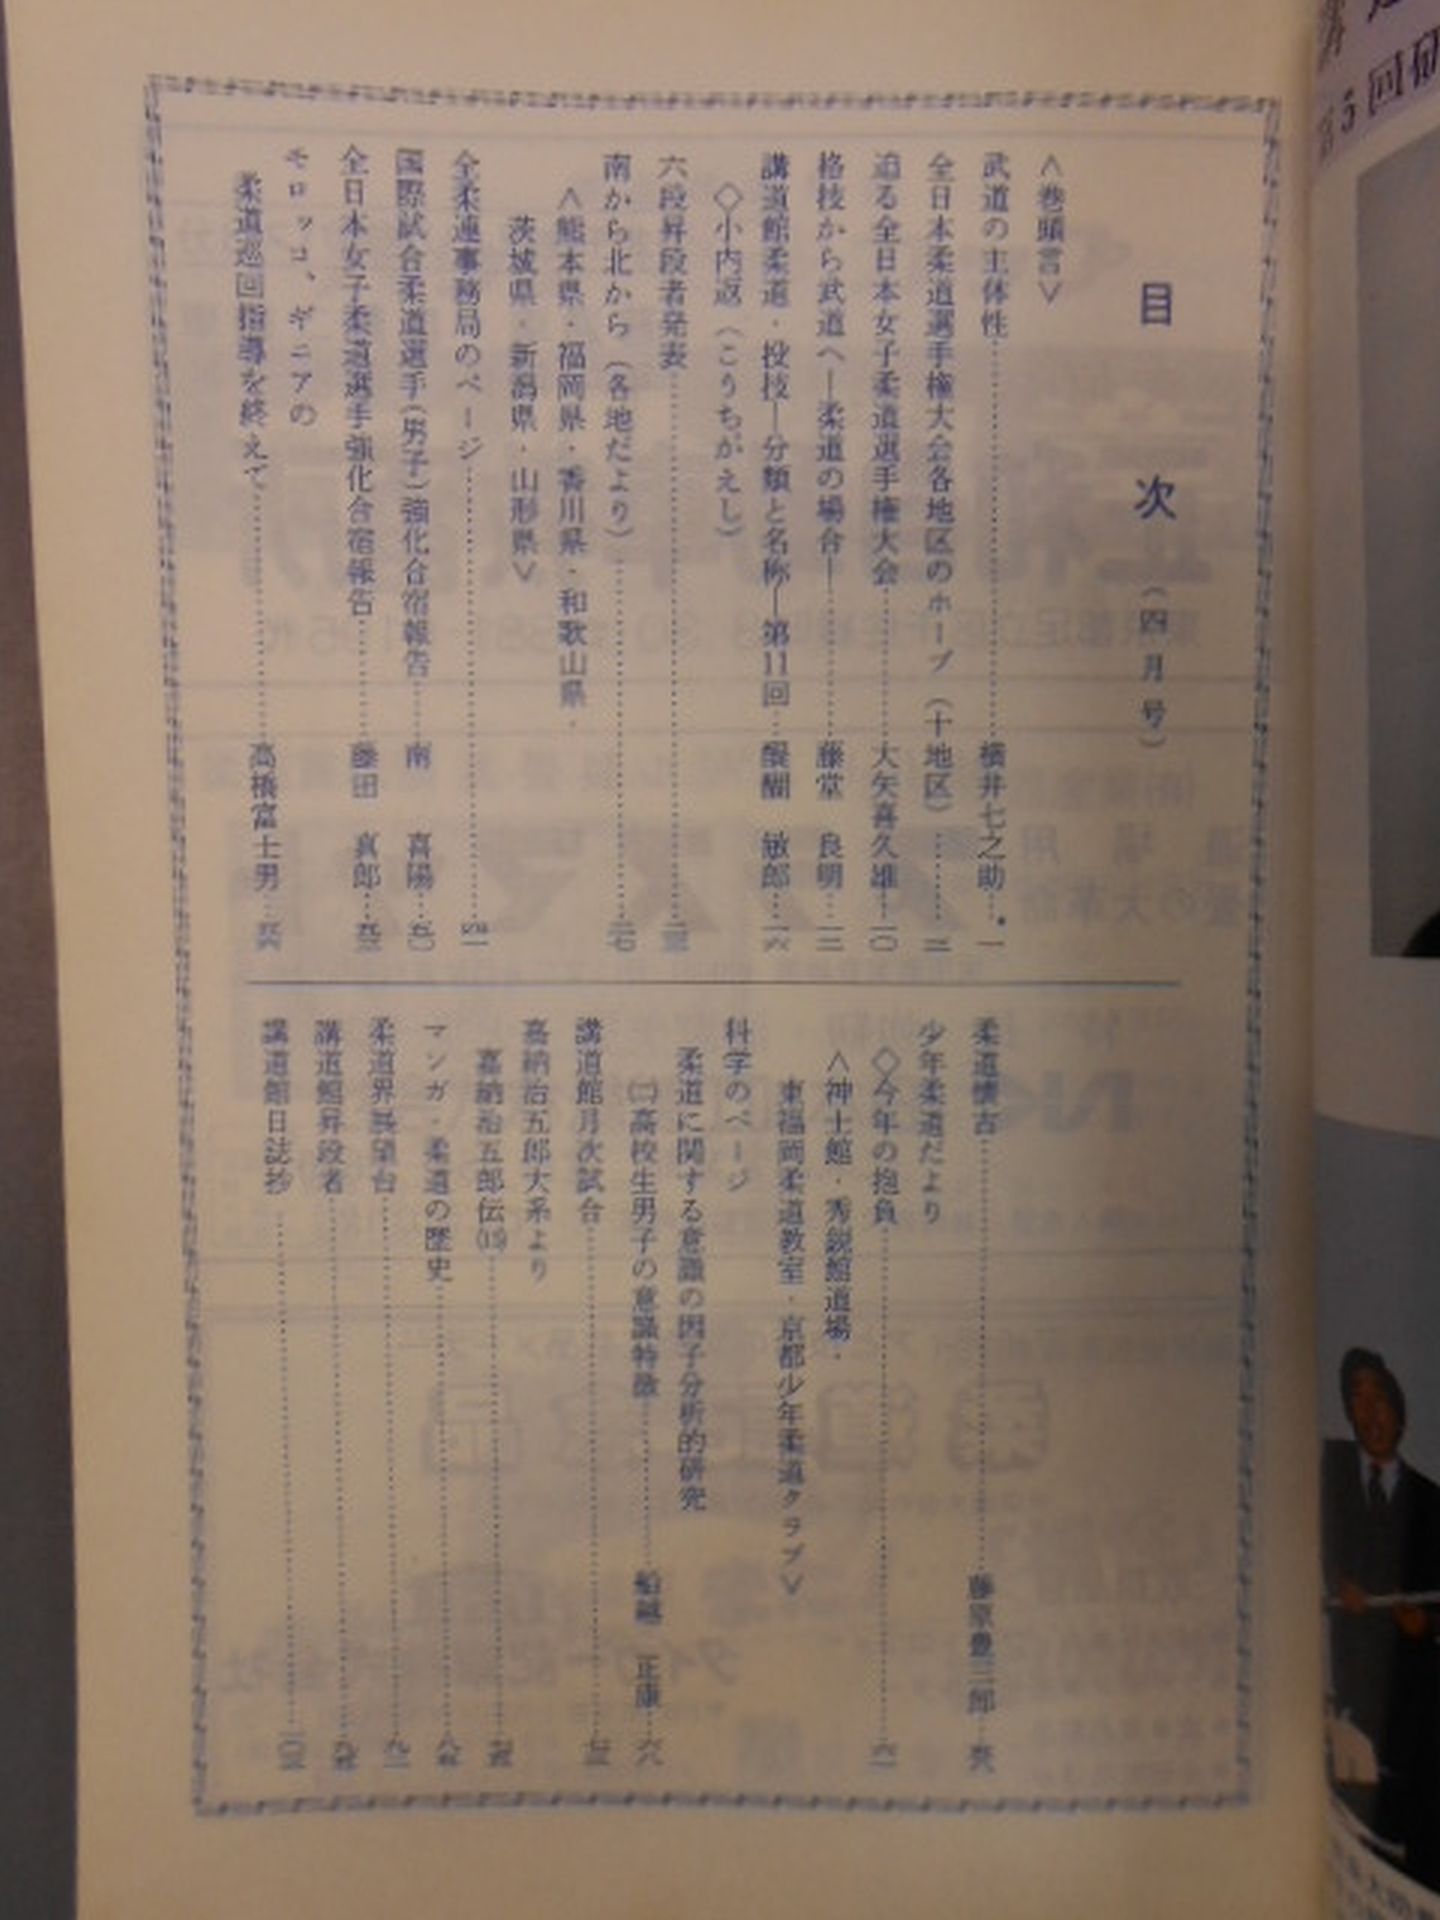 目次（四月号）
＜巻頭言＞
武道の主体性……横井七之助…一
全日本柔道選手権大会各地区のホープ（十地区）……二
迫る全日本女子柔道選手権大会……大矢喜久雄…一〇
格技から武道へ―柔道の場合―……藤堂　良明…一二
講道館柔道・投技―分類と名称―第11回…醍醐　敏郎…一六
◇小内返（こうちがえし）
六段昇段者発表……
南から北から（各地だより）……
＜熊本県・福岡県・香川県・和歌山県・
茨城県・新潟県・山形県＞
全柔連事務局のページ……
国際試合柔道選手（男子）強化合宿報告……南　喜陽…五〇
全日本女子柔道選手強化合宿報告……藤田　真郎…
モロッコ、ギニアの
柔道巡回指導を終えて……高橋富士男…
柔道懐古……藤原豊三郎…
少年柔道だより
◇今年の抱負……六一
＜神士館・秀鋭館道場・
東福岡柔道教室・京都少年柔道クラブ＞
科学のページ
柔道に関する意識の因子分析的研究
㈡高校生男子の意識特徴……船越　正康…六八
講道館月次試合……
嘉納治五郎大系より
嘉納治五郎伝⒂……
マンガ・柔道の歴史……
柔道界展望台……
講道館昇段者……
講道館日誌抄……